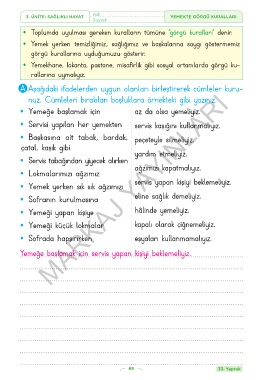 3. ÜNİTE: SAĞLIKLI HAYAT
YEMEKTE GÖRGÜ KURALLARI
• Toplumda uyulması gereken kuralların tümüne 'görgü kuralları' denir.
• Yemek yerken temizliğimiz, sağlığımız ve başkalarına saygı göstermemiz
görgü kurallarına uyduğumuzu gösterir.
• Yemekhane, lokanta, pastane, misafirlik gibi sosyal ortamlarda görgü ku-
rallarına uymalıyız.
A Aşağıdaki ifadelerden uygun olanları birleştirerek cümleler kuru-
nuz. Cümleleri bırakılan boşluklara örnekteki gibi yazınız.
• Yemeğe başlamak için
az da olsa yemeliyiz.
• Servisi yapılan her yemekten
servis kaşığını kullanmalıyız.
• Başkasına ait tabak, bardak,
çatal, kaşık gibi
peçeteyle silmeliyiz.
yardım etmeliyiz.
• Servis tabağından yiyecek alırken
ağzımızı kapatmalıyız.
• Lokmalarımızı ağzımız
servis yapan kişiyi beklemeliyiz.
• Yemek yerken sık sık ağzımızı
eline sağlık demeliyiz.
• Sofranın kurulmasına
hâlinde yemeliyiz.
• Yemeği yapan kişiye
kapalı olarak çiğnemeliyiz.
• Yemeği küçük lokmalar
eşyaları kullanmamalıyız.
• Sofrada hapşırırken
Yemeğe başlamak için servis yapan kişiyi beklemeliyiz.
MARKAJ YAYINLARI
33. Yaprak